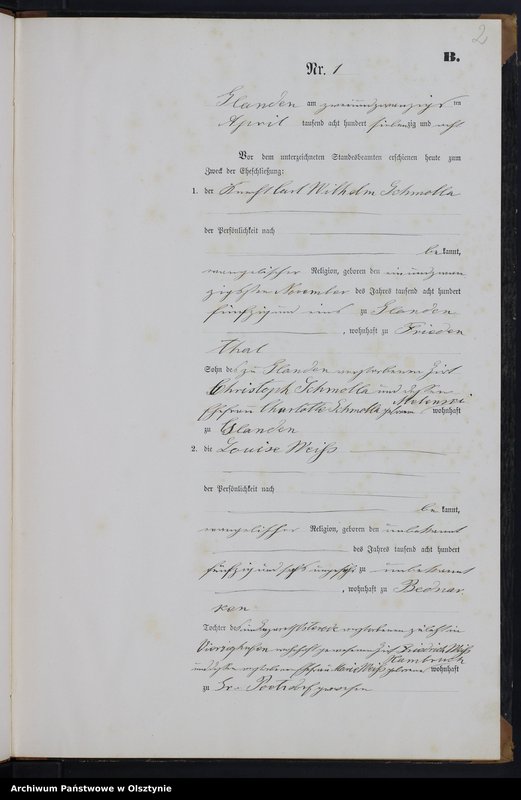 2
B.
Nr. 1
Glanden am zweiundzwanzigs ten
April tausend acht hundert siebenzig und acht
Vor dem unterzeichneten Standesbeamten erschienen heute zum
Zweck der Eheschließung:
1. der Knecht Carl Wilhelm Schmolla
der Persönlichkeit nach
be kannt,
evangelischer Religion, geboren den einundzwan
zigsten November des Jahres tausend acht hundert
fünfzig und eins zu Glanden
, wohnhaft zu Frieden
thal
Sohn des zu Glanden verstorbenen
Christoph Schmolla und dessen
Ehefrau Charlotte Schmolla geborene wohnhaft
zu Glanden
2. die Louise Weiß
der Persönlichkeit nach
be kannt,
evangelischer Religion, geboren den unbekannt
des Jahres tausend acht hundert
fünfzig und sechs ungefähr zu unbekannt
, wohnhaft zu Bednar
ken
Tochter des verstorbenen zuletzt in
wohnhaft gewesenen Friedrich Weiß
und dessen verstorbenen Ehefrau Marie Weiß geborene wohnhaft
zu Gr. gewesen
Archiwum Państwowe w Olsztynie